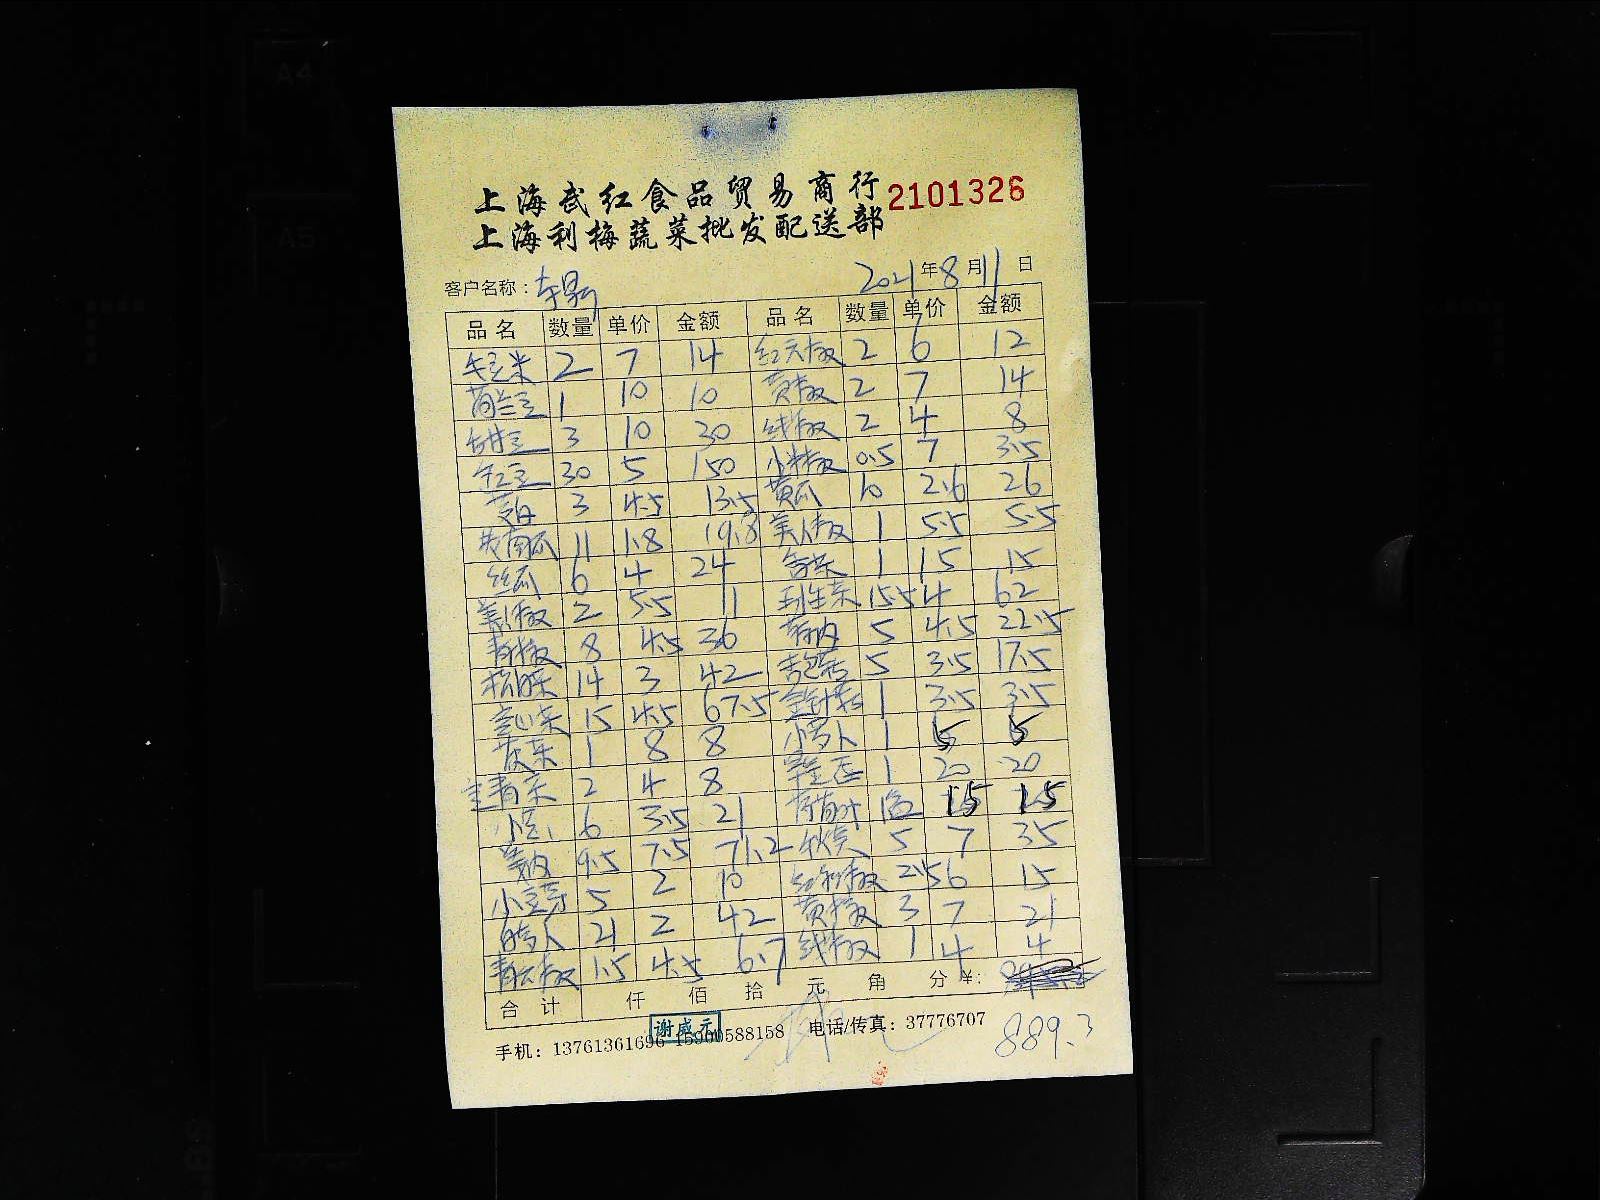 上海武红食品贸易商行 2101326
上海利梅蔬菜批发配送部
客户名称： 2021年8月11日
品名 数量 单价 金额 品名 数量 单价 金额
毛豆米 2 7 14 红尖椒 2 6 12
荷兰豆 1 10 10 黄椒 2 7 14
甜豆 3 10 30 线椒 2 4 8
豇豆 30 5 150 小米椒 0.5 7 3.5
茭白 3 4.5 13.5 黄瓜 10 2.6 26
南瓜 11 1.8 19.8 美人椒 1 5.5 5.5
丝瓜 6 4 24 1 15 15
美人椒 2 5.5 11 生菜 15.5 4 62
青椒 8 4.5 36 5 4.5 22.5
14 3 42 5 3.5 17.5
空心菜 15 4.5 67.5 金针菇 1 3.5 3.5
1 8 8 小萝卜 1 5 5
青菜 2 4 8 1 20 20
小 6 3.5 21 15 15
9.5 7.5 71.2 秋葵 5 7 35
小豆芽 5 2 10 红椒 2.5 6 15
白萝卜 21 2 42 黄椒 3 7 21
青椒 1.5 4.5 6.7 线椒 1 4 4
合计 仟 佰 拾 元 角 分 ¥:
谢威元
手机：13761361696 15900588158 电话/传真：37776707
889.3
A4
A5